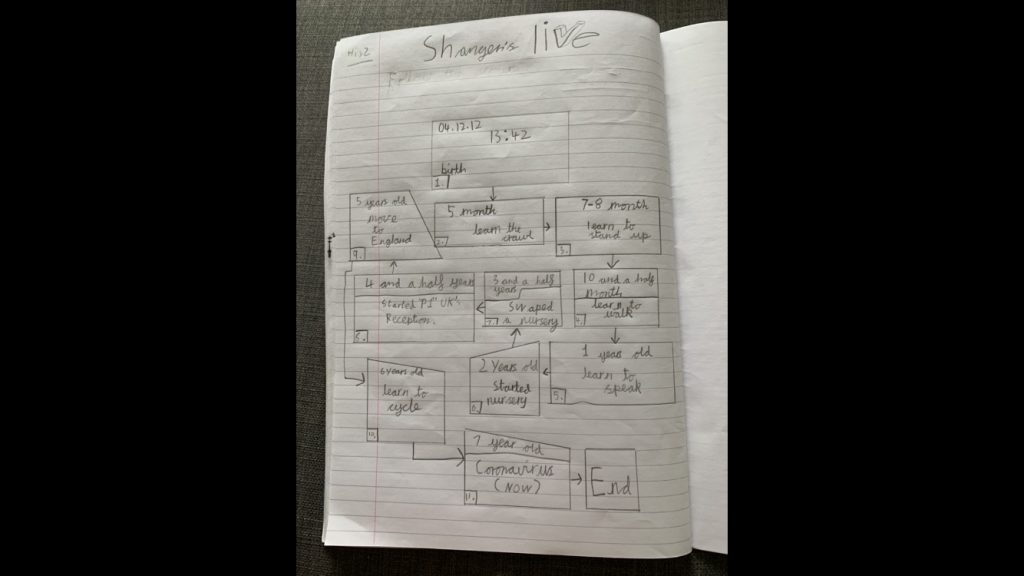 His2
Shangeris live
04.12.12
13:42
birth
1.
5 month
learn the
crawl
2.
7-8 month
learn to
stand up
3.
10 and a half
month
learn to
walk
4.
1 year old
learn to
speak
5.
2 years old
started
nursery
6.
3 and a half
years
swaped
a nursery
7.
4 and a half years
Started "P1" UK's
Reception.
8.
5 years old
move
to
England
9.
6 years old
learn to
cycle
10.
7 year old
Coronavirus
(NOW)
11.
End